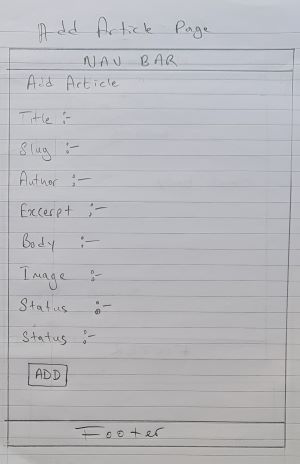 Add Article Page
NAV BAR
Add Article
Title :-
Slug :-
Author :-
Excerpt :-
Body :-
Image :-
Status :-
Status :-
ADD
Footer